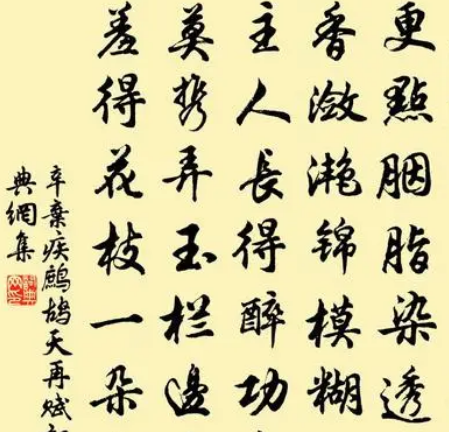 更點胭脂染透
香潋滟锦模糊
主人長得醉功
莫携弄玉栏邊
羞得花枝一朵
辛棄疾鷓鴣天再赋
典網集